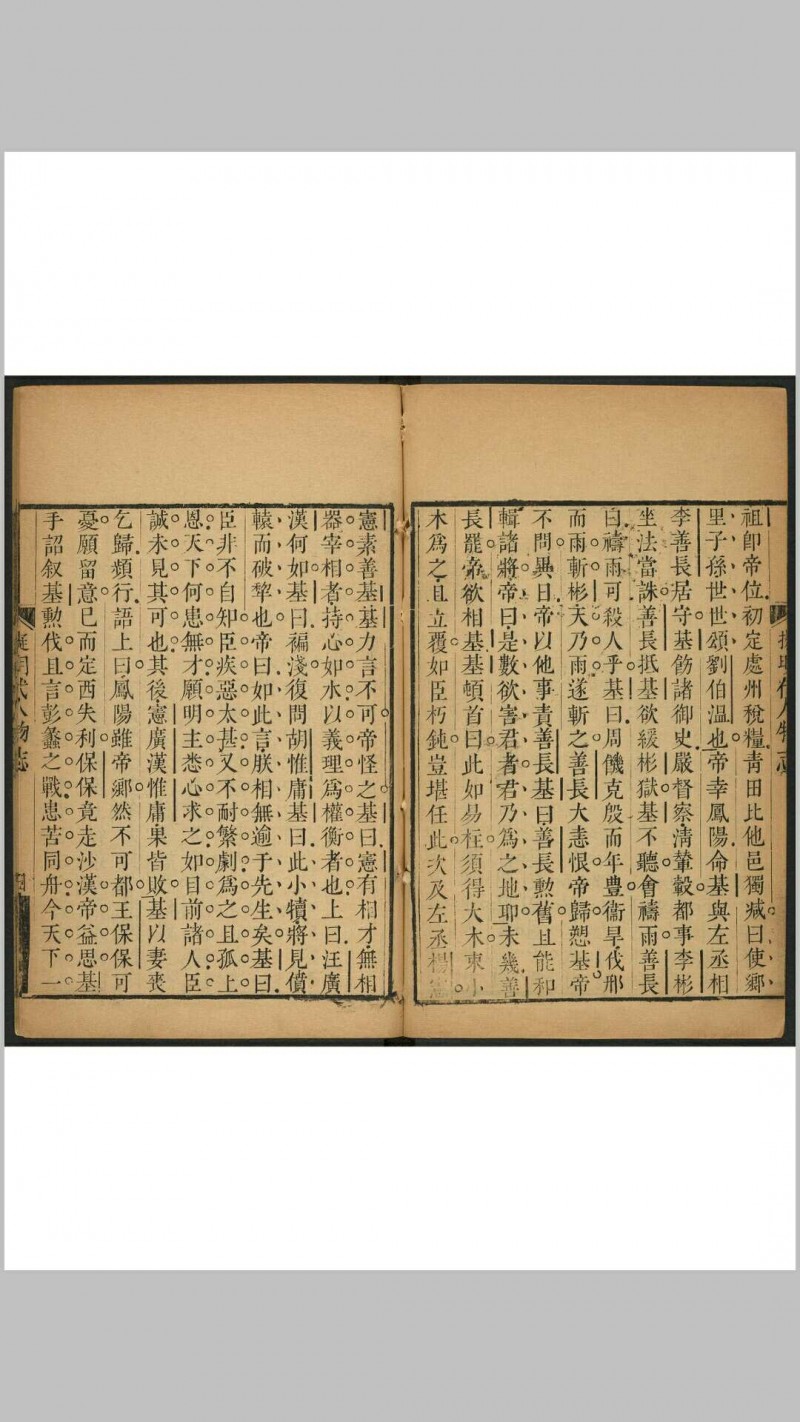 祖卽帝位初定處州稅糧青田比他邑獨減曰使鄉
里子孫世世頌劉伯溫也帝幸鳳陽命基與左丞相
李善長居守基飭諸御史嚴督察淸輦轂都事李彬
坐法當誅善長抵基欲緩彬獄基不聽會禱雨善長
曰禱雨可殺人乎基曰周饑克殷而年豊衞旱伐邢
而雨斬彬天乃雨遂斬之善長大恚恨帝歸愬基帝
不問異日帝以他事責善長基曰善長勲舊且能和
輯諸將帝曰是數欲害君者君乃爲之地耶未幾善
長罷帝欲相基基頓首曰此如易柱須得大木束小
木爲之且立覆如臣朽鈍豈堪任此次及左丞楊憲
憲素善基基力言不可帝怪之基曰憲有相才無相
器宰相者持心如水以義理爲權衡者也上曰汪廣
漢何如基曰褊淺復問胡惟庸基曰此小犢將見僨
轅而破犂也帝曰如此言朕相無逾于先生矣基曰
臣非不自知臣疾惡太甚又不耐繁劇爲之且孤上
恩天下何患無才願明主悉心求之如目前諸人臣
誠未見其可也其後憲廣漢惟庸果皆敗基以妻喪
乞歸頻行語上曰鳳陽雖帝鄉然不可都王保保可
憂願留意已而定西失利保保竟走沙漢帝益思基
手詔叙基勲伐且言彭蠡之戰患苦同舟今天下一